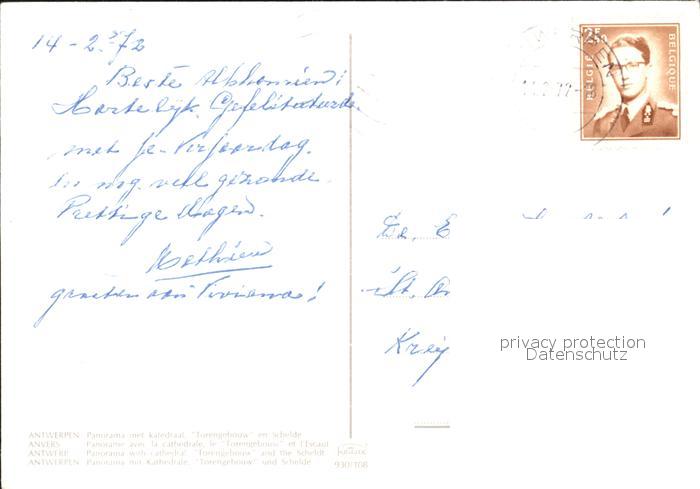 14 - 2 - 72
Beste Alphonsien!
Hartelijk Gefeliciteerd
met je Verjaardag.
En nog veel gezonde
Prettige dagen.
groeten aan Viviana!
BELGIE 2.50 BELGIQUE
De. E
St. A
Krey
privacy protection
Datenschutz
ANTWERPEN: Panorama met katedraal, "Torengebouw" en Schelde
ANVERS Panorama avec la cathedrale, le "Torengebouw" et l'Escaut
ANTWERP: Panorama with cathedral, "Torengebouw" and the Scheldt
ANTWERPEN Panorama mit Kathedrale, "Torengebouw" und Schelde
930/108